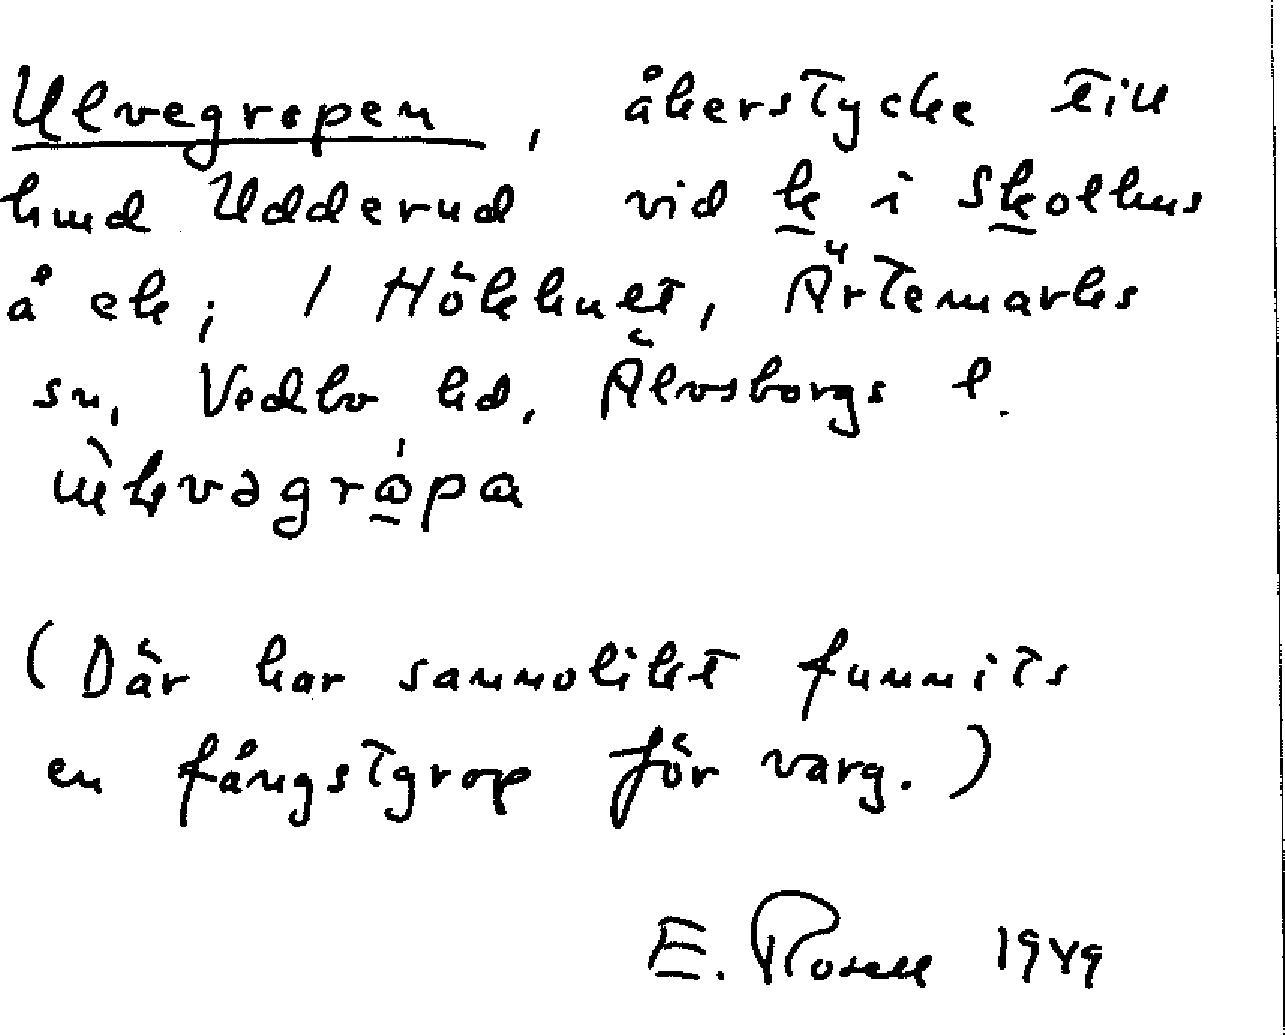 Ulvegropen, åkerstycke till
hmd Udderud vid k i Skolhus
å ek; 1 Hökhult, Ärtemarks
sn, Vedbo hd, Älvsborgs l.
(Där har sannolikt funnits
en fångstgrop för varg.)
E. Rosell 1949